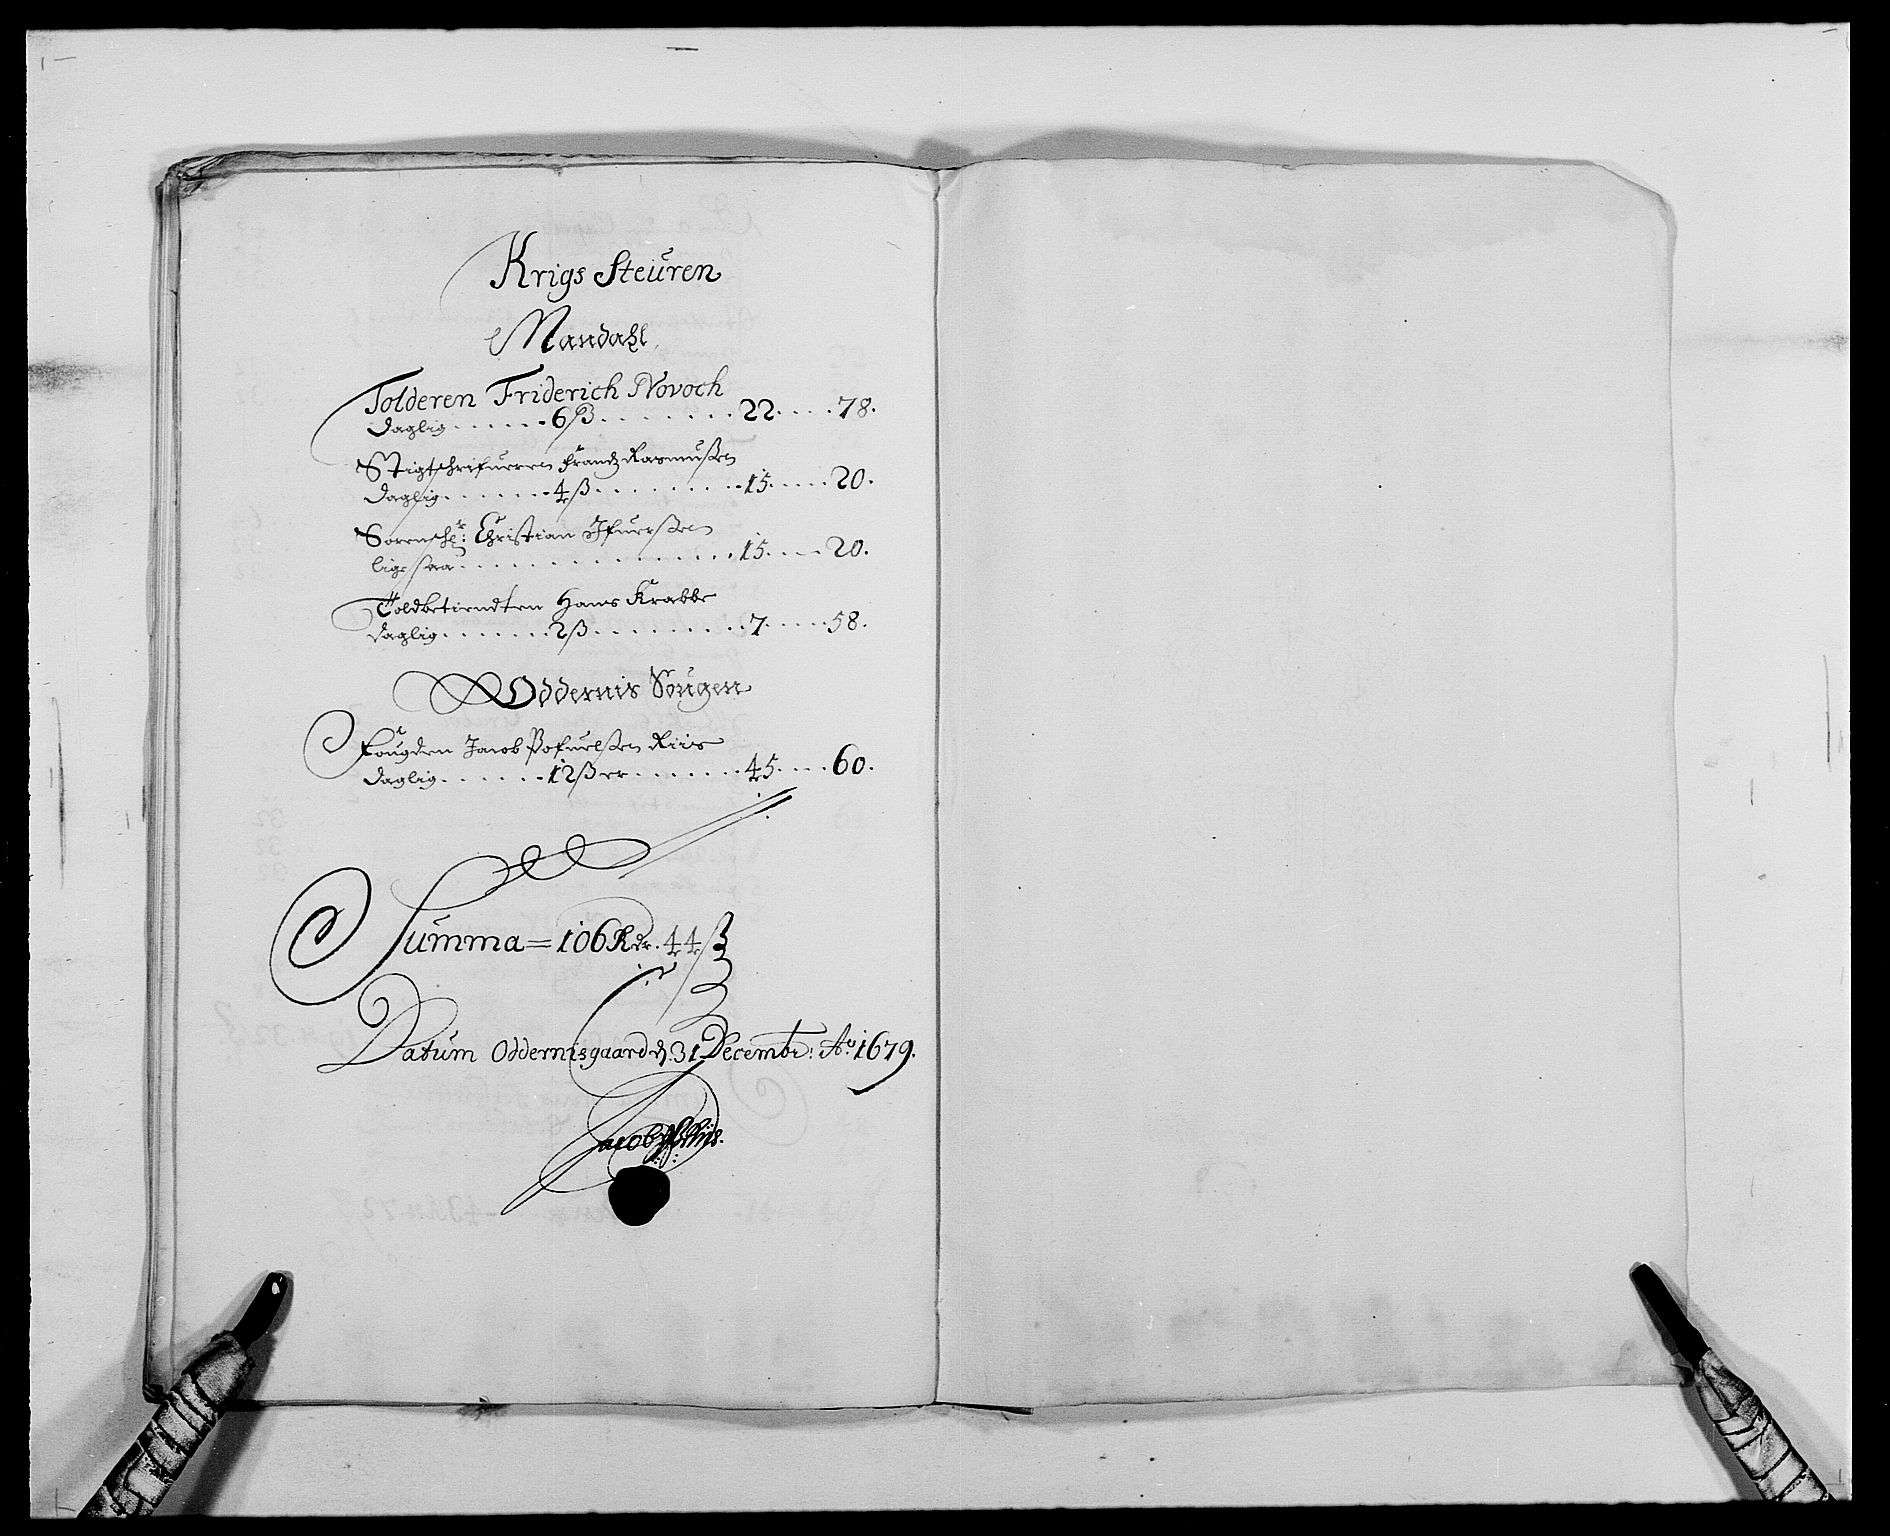 Krigs Steuren
Mandahl
Tolderen Friderich Novoch
daglig . . . . . . 6 ß . . . . . . . . 22 . . . . 78.
Stigtschrifueren Frandz Rasmußen
daglig . . . . . . . 4 ß . . . . . . . . . 15 . . . . . 20.
Sorenschr: Christian Ifuerßen
lige saa . . . . . . . . . . . . . . . . . 15 . . . . 20.
Toldbetiendten Hans Krabbe
daglig . . . . . . . 2 ß . . . . . . . . . 7 . . . . . 58.
Oddernis Sougen
Fougden Jacob Pofuelßen Riis
daglig . . . . . . . 12 ß er . . . . . . . 45 . . . . 60.
Summa = 106 Rdr. 44 ß
Datum Oddernisgaard d. 31 Decembr: Ao 1679.
Jacob P Riis.